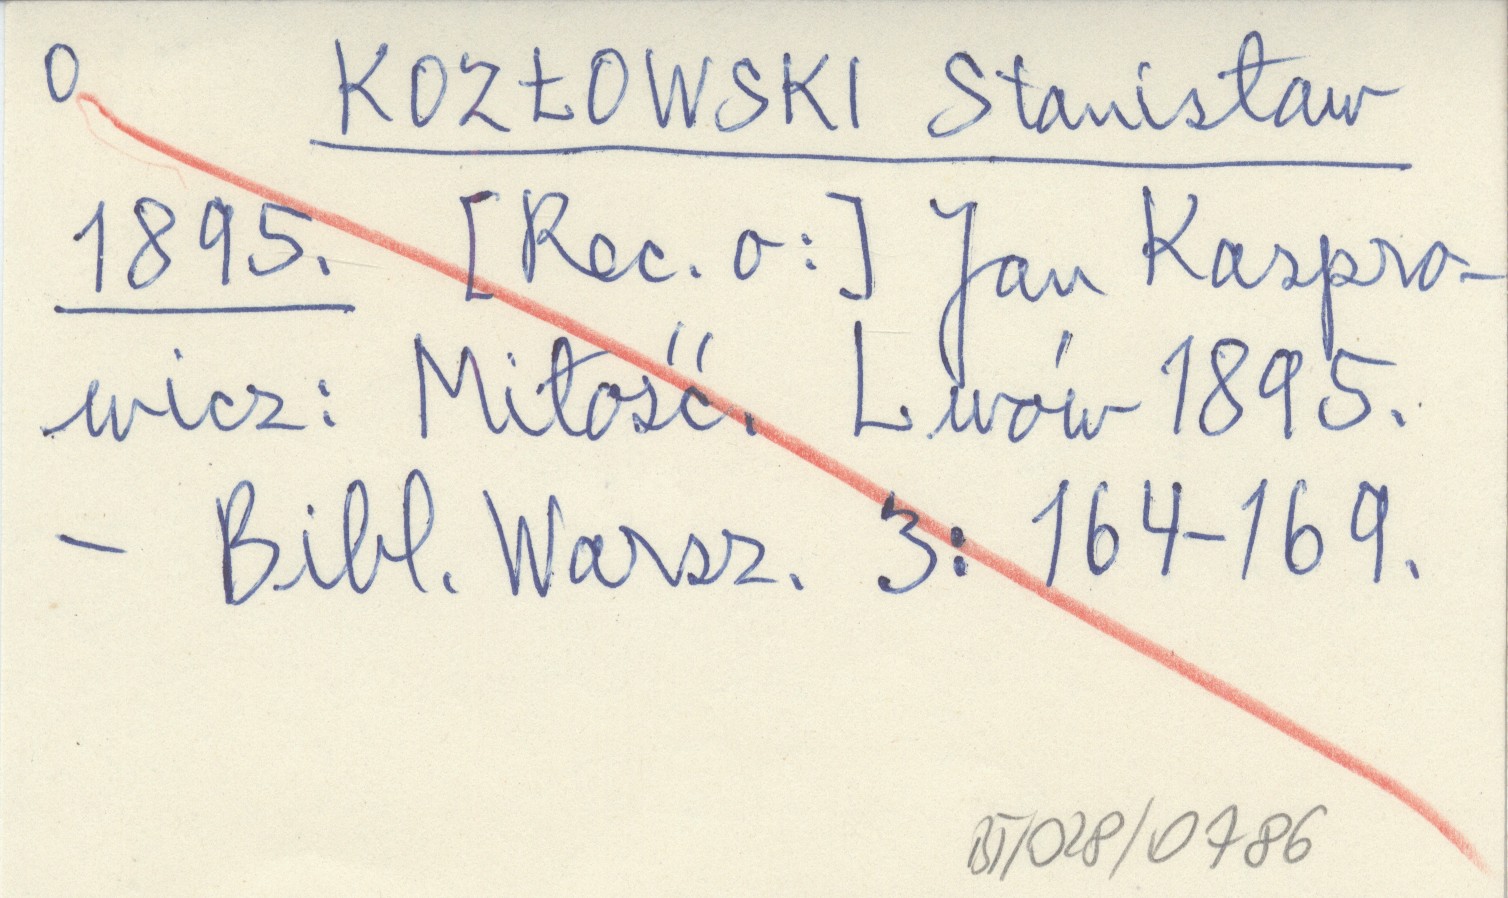 0 KOZŁOWSKI Stanisław
1895. [Rec. o:] Jan Kaspro-
wicz: Miłość. Lwów 1895.
- Bibl. Warsz. 3: 164-169.
BT/028/0786